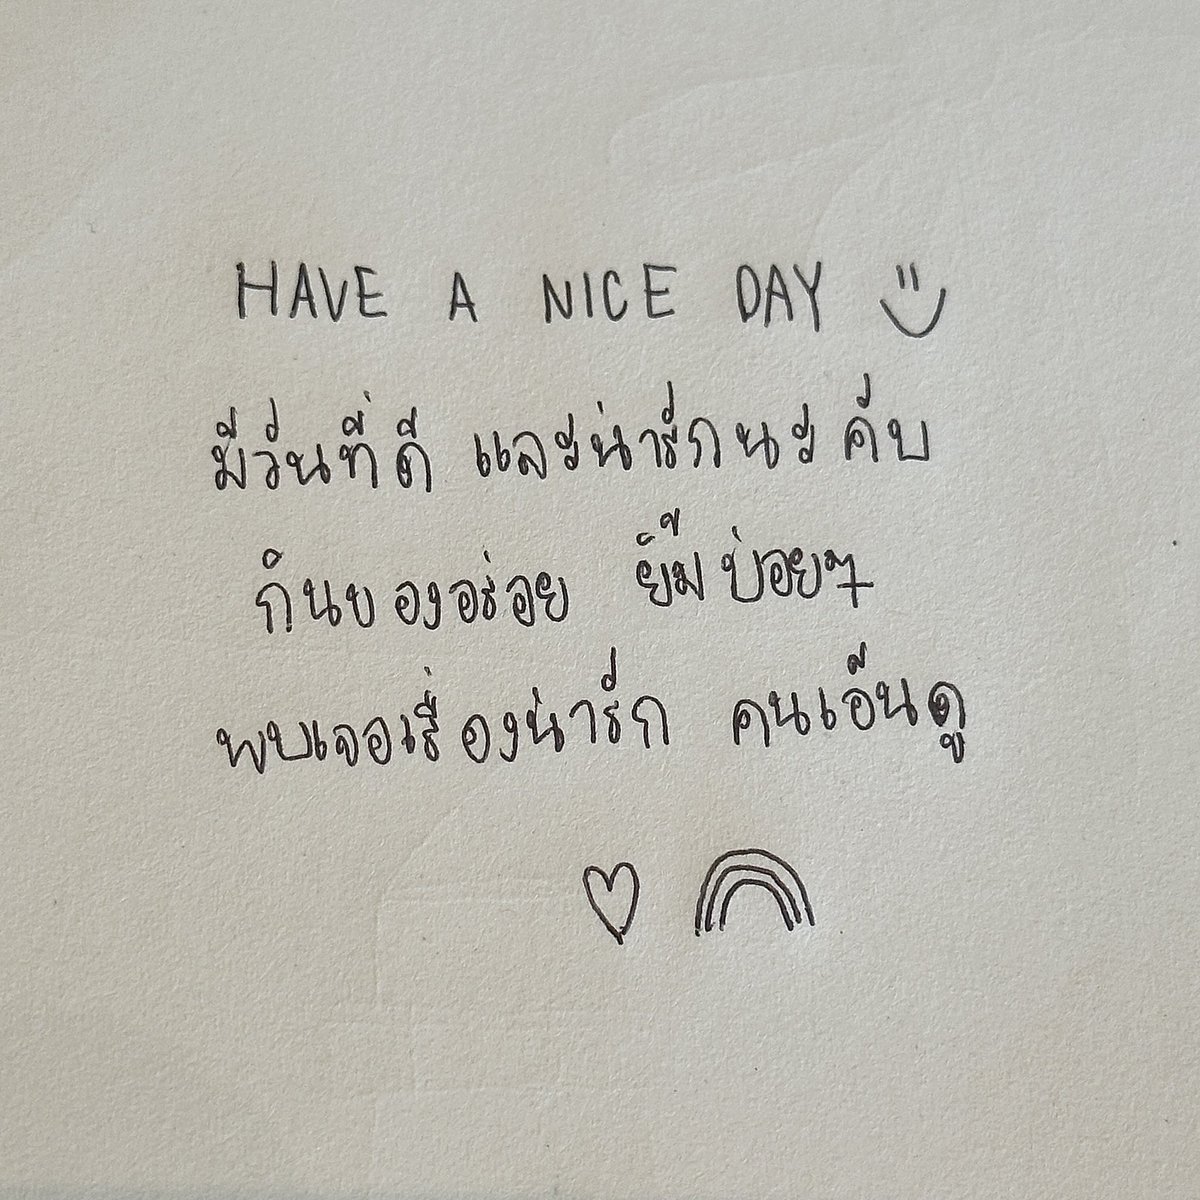 HAVE A NICE DAY
มีวันที่ดี และน่ารักนะ คั้บ
กินของอร่อย ยิ๊มบ่อยๆ
พบเจอเรื่องน่ารัก คนเอ็นดู